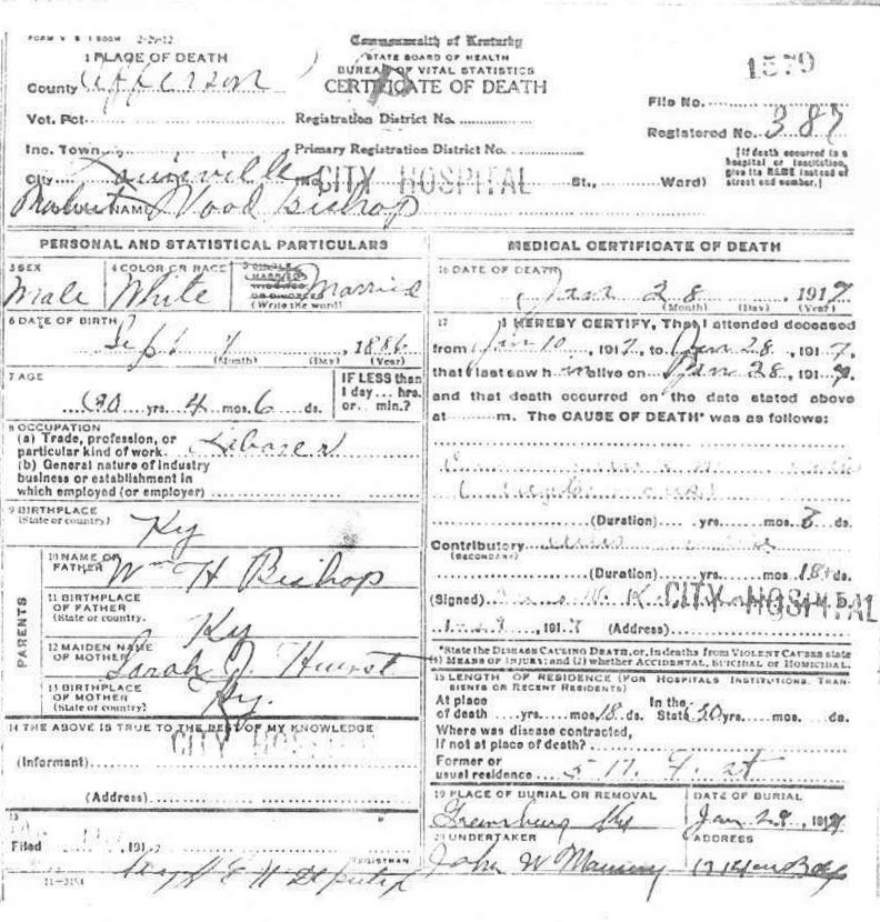 FORM V. S. 1 500M 2-29-12
Commonwealth of Kentucky
STATE BOARD OF HEALTH
BUREAU OF VITAL STATISTICS
CERTIFICATE OF DEATH
1 PLACE OF DEATH
County Jefferson
1579
File No.
Vot. Pct. Registration District No.
Registered No. 387
Inc. Town Primary Registration District No.
[If death occurred in a hospital or institution, give its NAME instead of street and number.]
City Louisville No. CITY HOSPITAL St., Ward)
NAME Wood Bishop
PERSONAL AND STATISTICAL PARTICULARS
3 SEX
Male
4 COLOR OR RACE
White
5 SINGLE
MARRIED
WIDOWED
OR DIVORCED
(Write the word)
Married
6 DATE OF BIRTH
Sept 1886
(Month) (Day) (Year)
7 AGE
30 yrs. 4 mos. 6 ds.
IF LESS than
1 day... hrs.
or... min.?
8 OCCUPATION
(a) Trade, profession, or
particular kind of work. Laborer
(b) General nature of industry
business or establishment in
which employed (or employer)
9 BIRTHPLACE
(State or country)
Ky
PARENTS
10 NAME OF
FATHER Wm H Bishop
11 BIRTHPLACE
OF FATHER
(State or country.
Ky
12 MAIDEN NAME
OF MOTHER
Sarah J. Hurst
13 BIRTHPLACE
OF MOTHER
(State or country)
Ky.
14 THE ABOVE IS TRUE TO THE BEST OF MY KNOWLEDGE
CITY HOSPITAL
(Informant)
(Address)
15
Filed , 191
REGISTRAR
Deputy
11-3184
MEDICAL CERTIFICATE OF DEATH
16 DATE OF DEATH
Jan 28 1917
(Month) (Day) (Year)
17 I HEREBY CERTIFY, That I attended deceased
from Jan 10, 1917, to Jan 28, 1917,
that I last saw him alive on Jan 28, 1917.
and that death occurred on the date stated above
at m. The CAUSE OF DEATH* was as follows:
(Duration) yrs. mos. 8 ds.
Contributory
(SECONDARY)
(Duration) yrs. mos. 18 ds.
(Signed) CITY HOSPITAL
191 (Address)
*State the DISEASE CAUSING DEATH, or, in deaths from VIOLENT CAUSES state
(1) MEANS OF INJURY; and (2) whether ACCIDENTAL, SUICIDAL or HOMICIDAL.
18 LENGTH OF RESIDENCE (FOR HOSPITALS INSTITUTIONS, TRANSIENTS OR RECENT RESIDENTS)
At place
of death yrs. mos. 18 ds.
In the
State 30 yrs. mos. ds.
Where was disease contracted,
if not at place of death?
Former or
usual residence 517. 9. st
19 PLACE OF BURIAL OR REMOVAL
DATE OF BURIAL
Jan 29, 1917
20 UNDERTAKER
John W Manning
ADDRESS